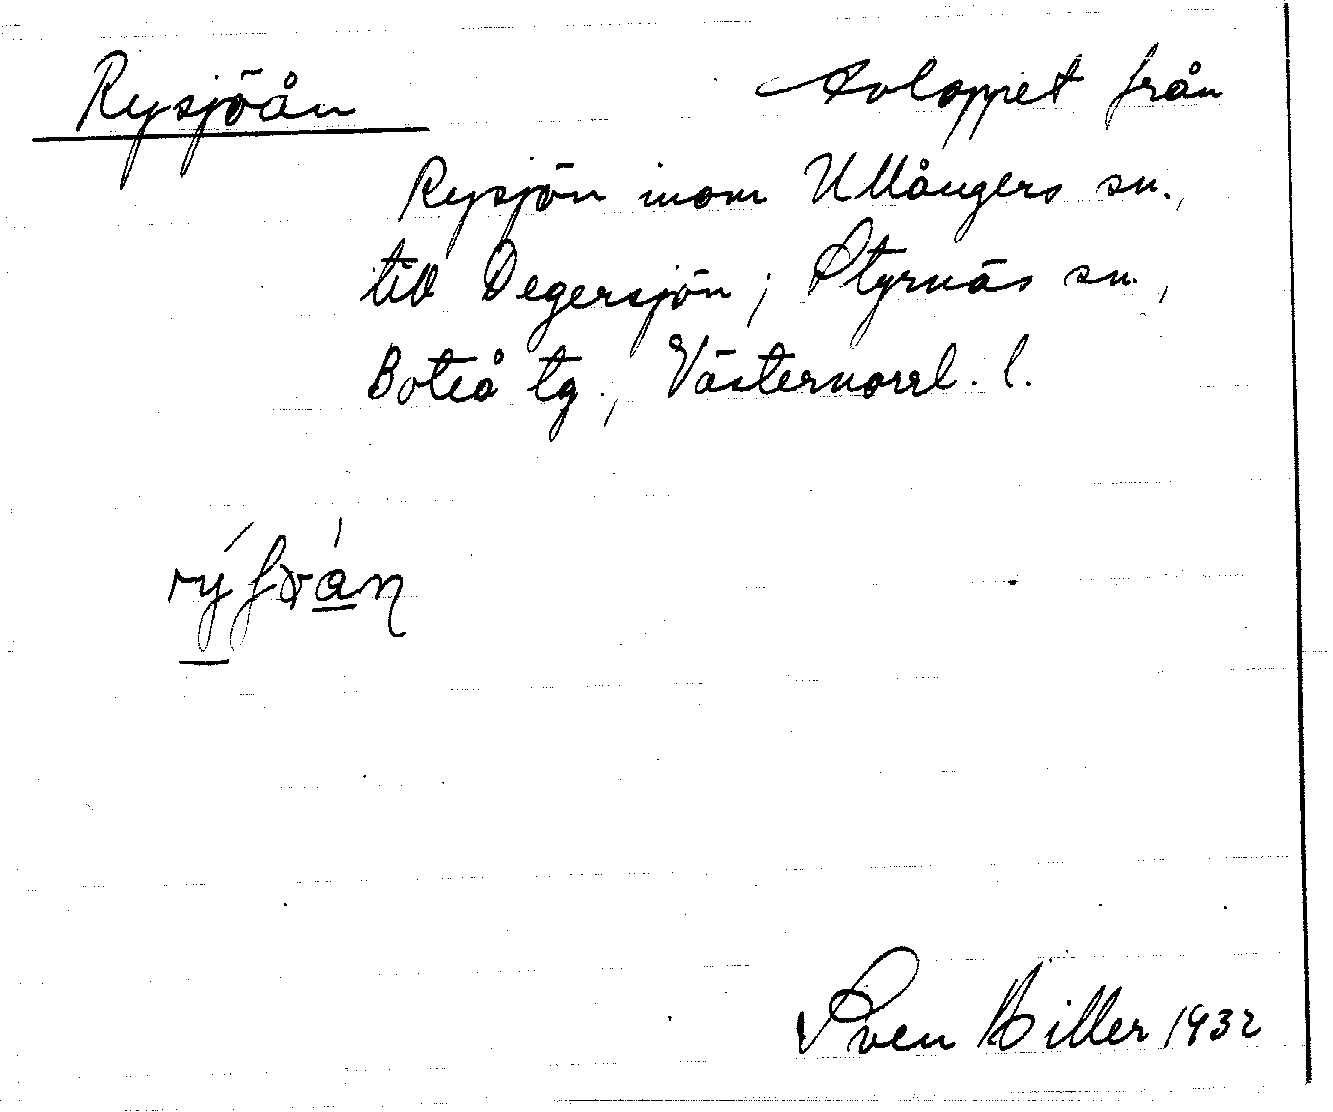 Rysjöån Avloppet från
Rysjön inom Ullångers sn.,
till Degersjön, Styrnäs sn.,
Boteå tg., Västernorrl. l.
Sven Hiller 1932